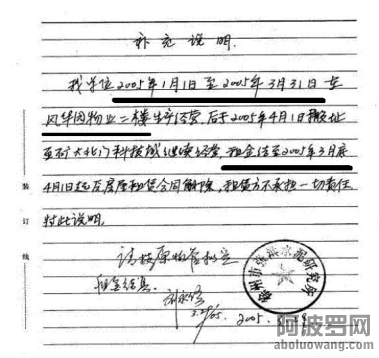 补充说明
我单位2005年1月1日至2005年3月31日在
风华园物业二楼生产经营,后于2005年4月1日搬址
至 大北门科技城继续经营,租金结至2005年3月底
4月1日起 房屋租赁合同解除,租赁方不承担一切责任
对此说明。
请按原
租金结
2005.
装
订
线
市 研究所
阿波罗网
aboluowang.com